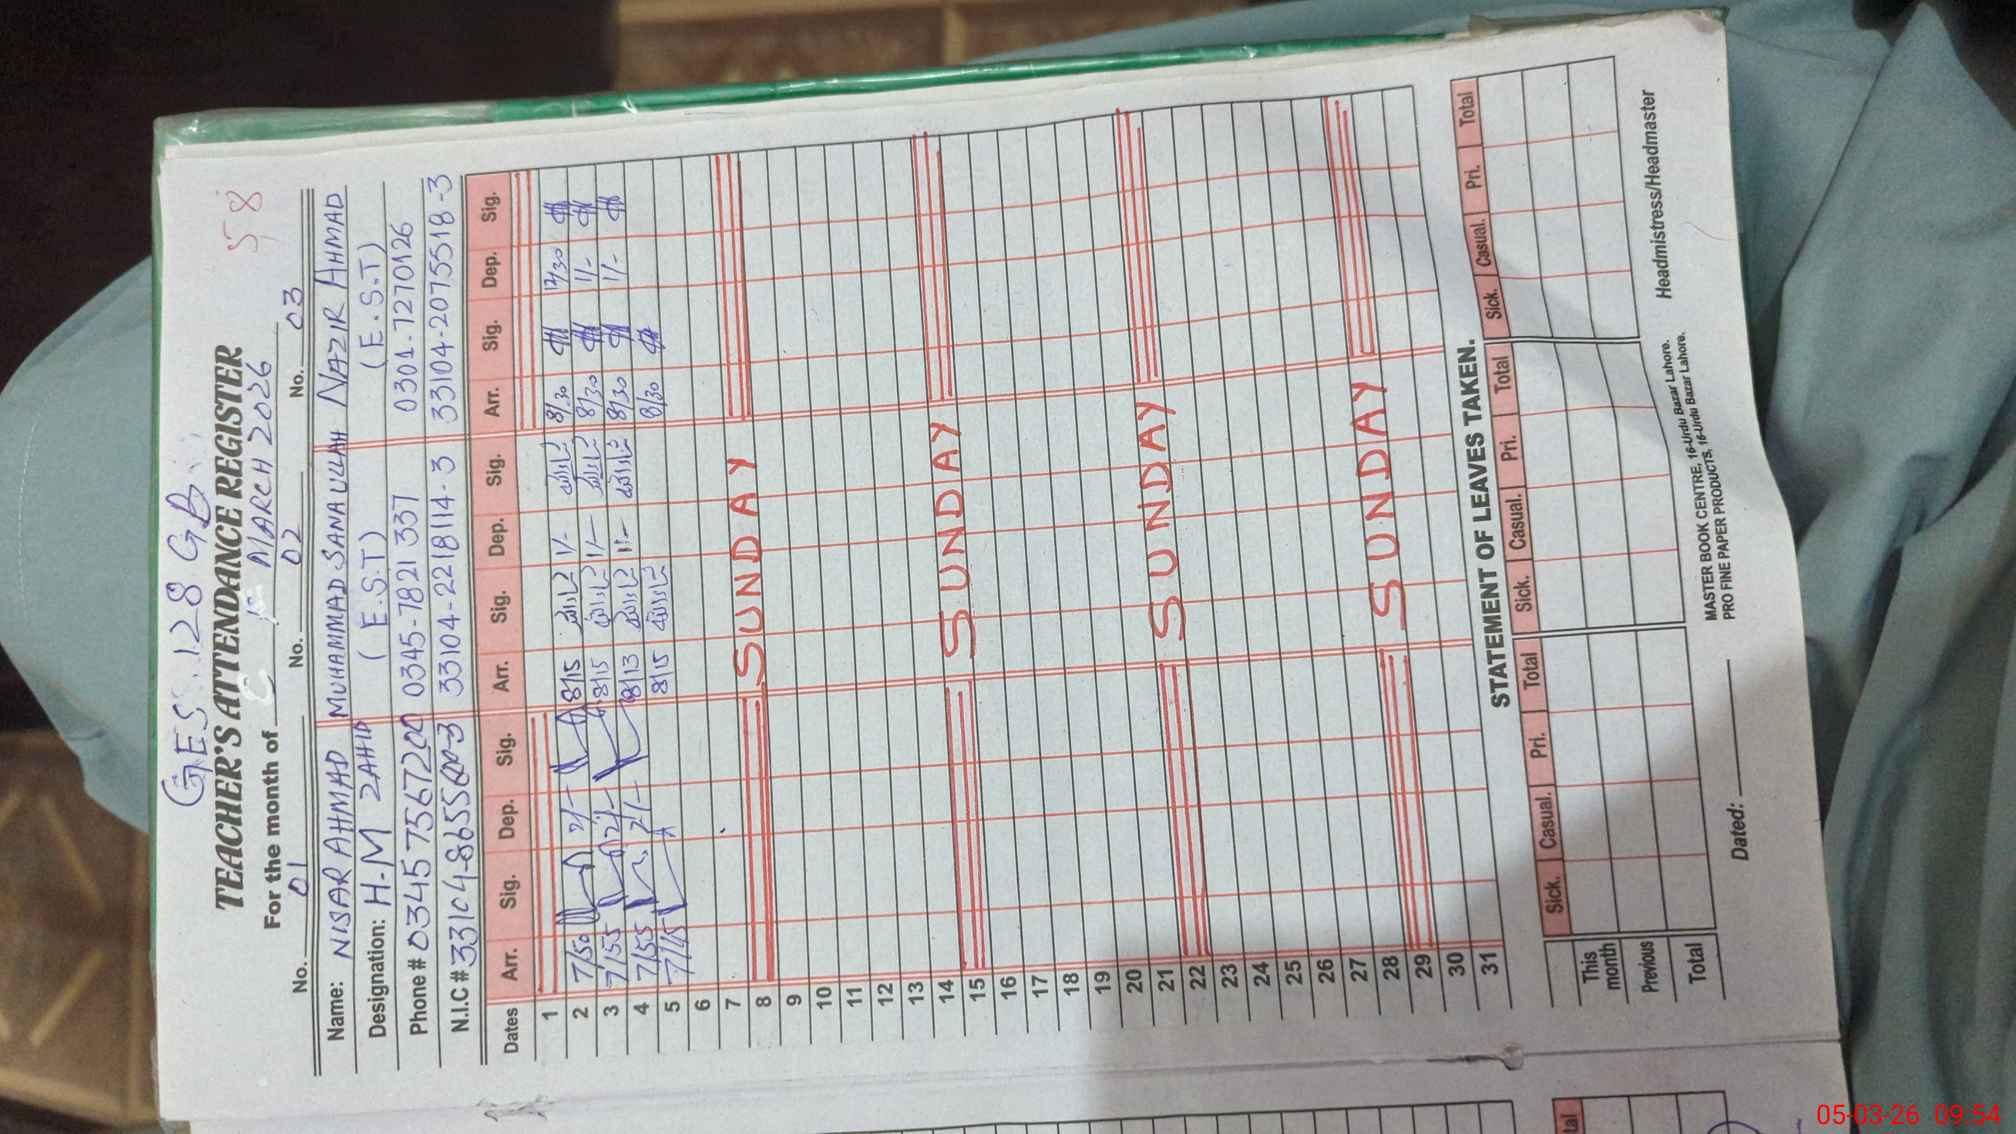 58
G.E.S. 128 GB
TEACHER'S ATTENDANCE REGISTER
For the month of MARCH 2026
No. 01 No. 02 No. 03
Name: NISAR AHMAD MUHAMMAD SANAULLAH NAZIR AHMAD
Designation: H.M ZAHID (E.S.T) (E.S.T)
Phone # 0345 7567200 0345-7821337 0301-7270126
N.I.C # 33104-8655 33104-2218114-3 33104-2075518-3
Dates Arr. Sig. Dep. Sig. Arr. Sig. Dep. Sig. Arr. Sig. Dep. Sig.
1
2 7/50 2/- 8/15 1/- 8/30 12/30
3 7/55 2/- 8/15 1/- 8/30 1/-
4 7/55 2/- 8/13 1/- 8/30 1/-
5 7/45 8/15 8/30
6
7
8 SUNDAY
9
10
11
12
13
14
15 SUNDAY
16
17
18
19
20
21
22 SUNDAY
23
24
25
26
27
28
29 SUNDAY
30
31
STATEMENT OF LEAVES TAKEN.
Sick. Casual. Pri. Total Sick. Casual. Pri. Total Sick. Casual. Pri. Total
This month
Previous
Total
Dated: Headmistress/Headmaster
MASTER BOOK CENTRE, 16-Urdu Bazar Lahore.
PRO FINE PAPER PRODUCTS, 16-Urdu Bazar Lahore.
tal
05-03-26 09:54